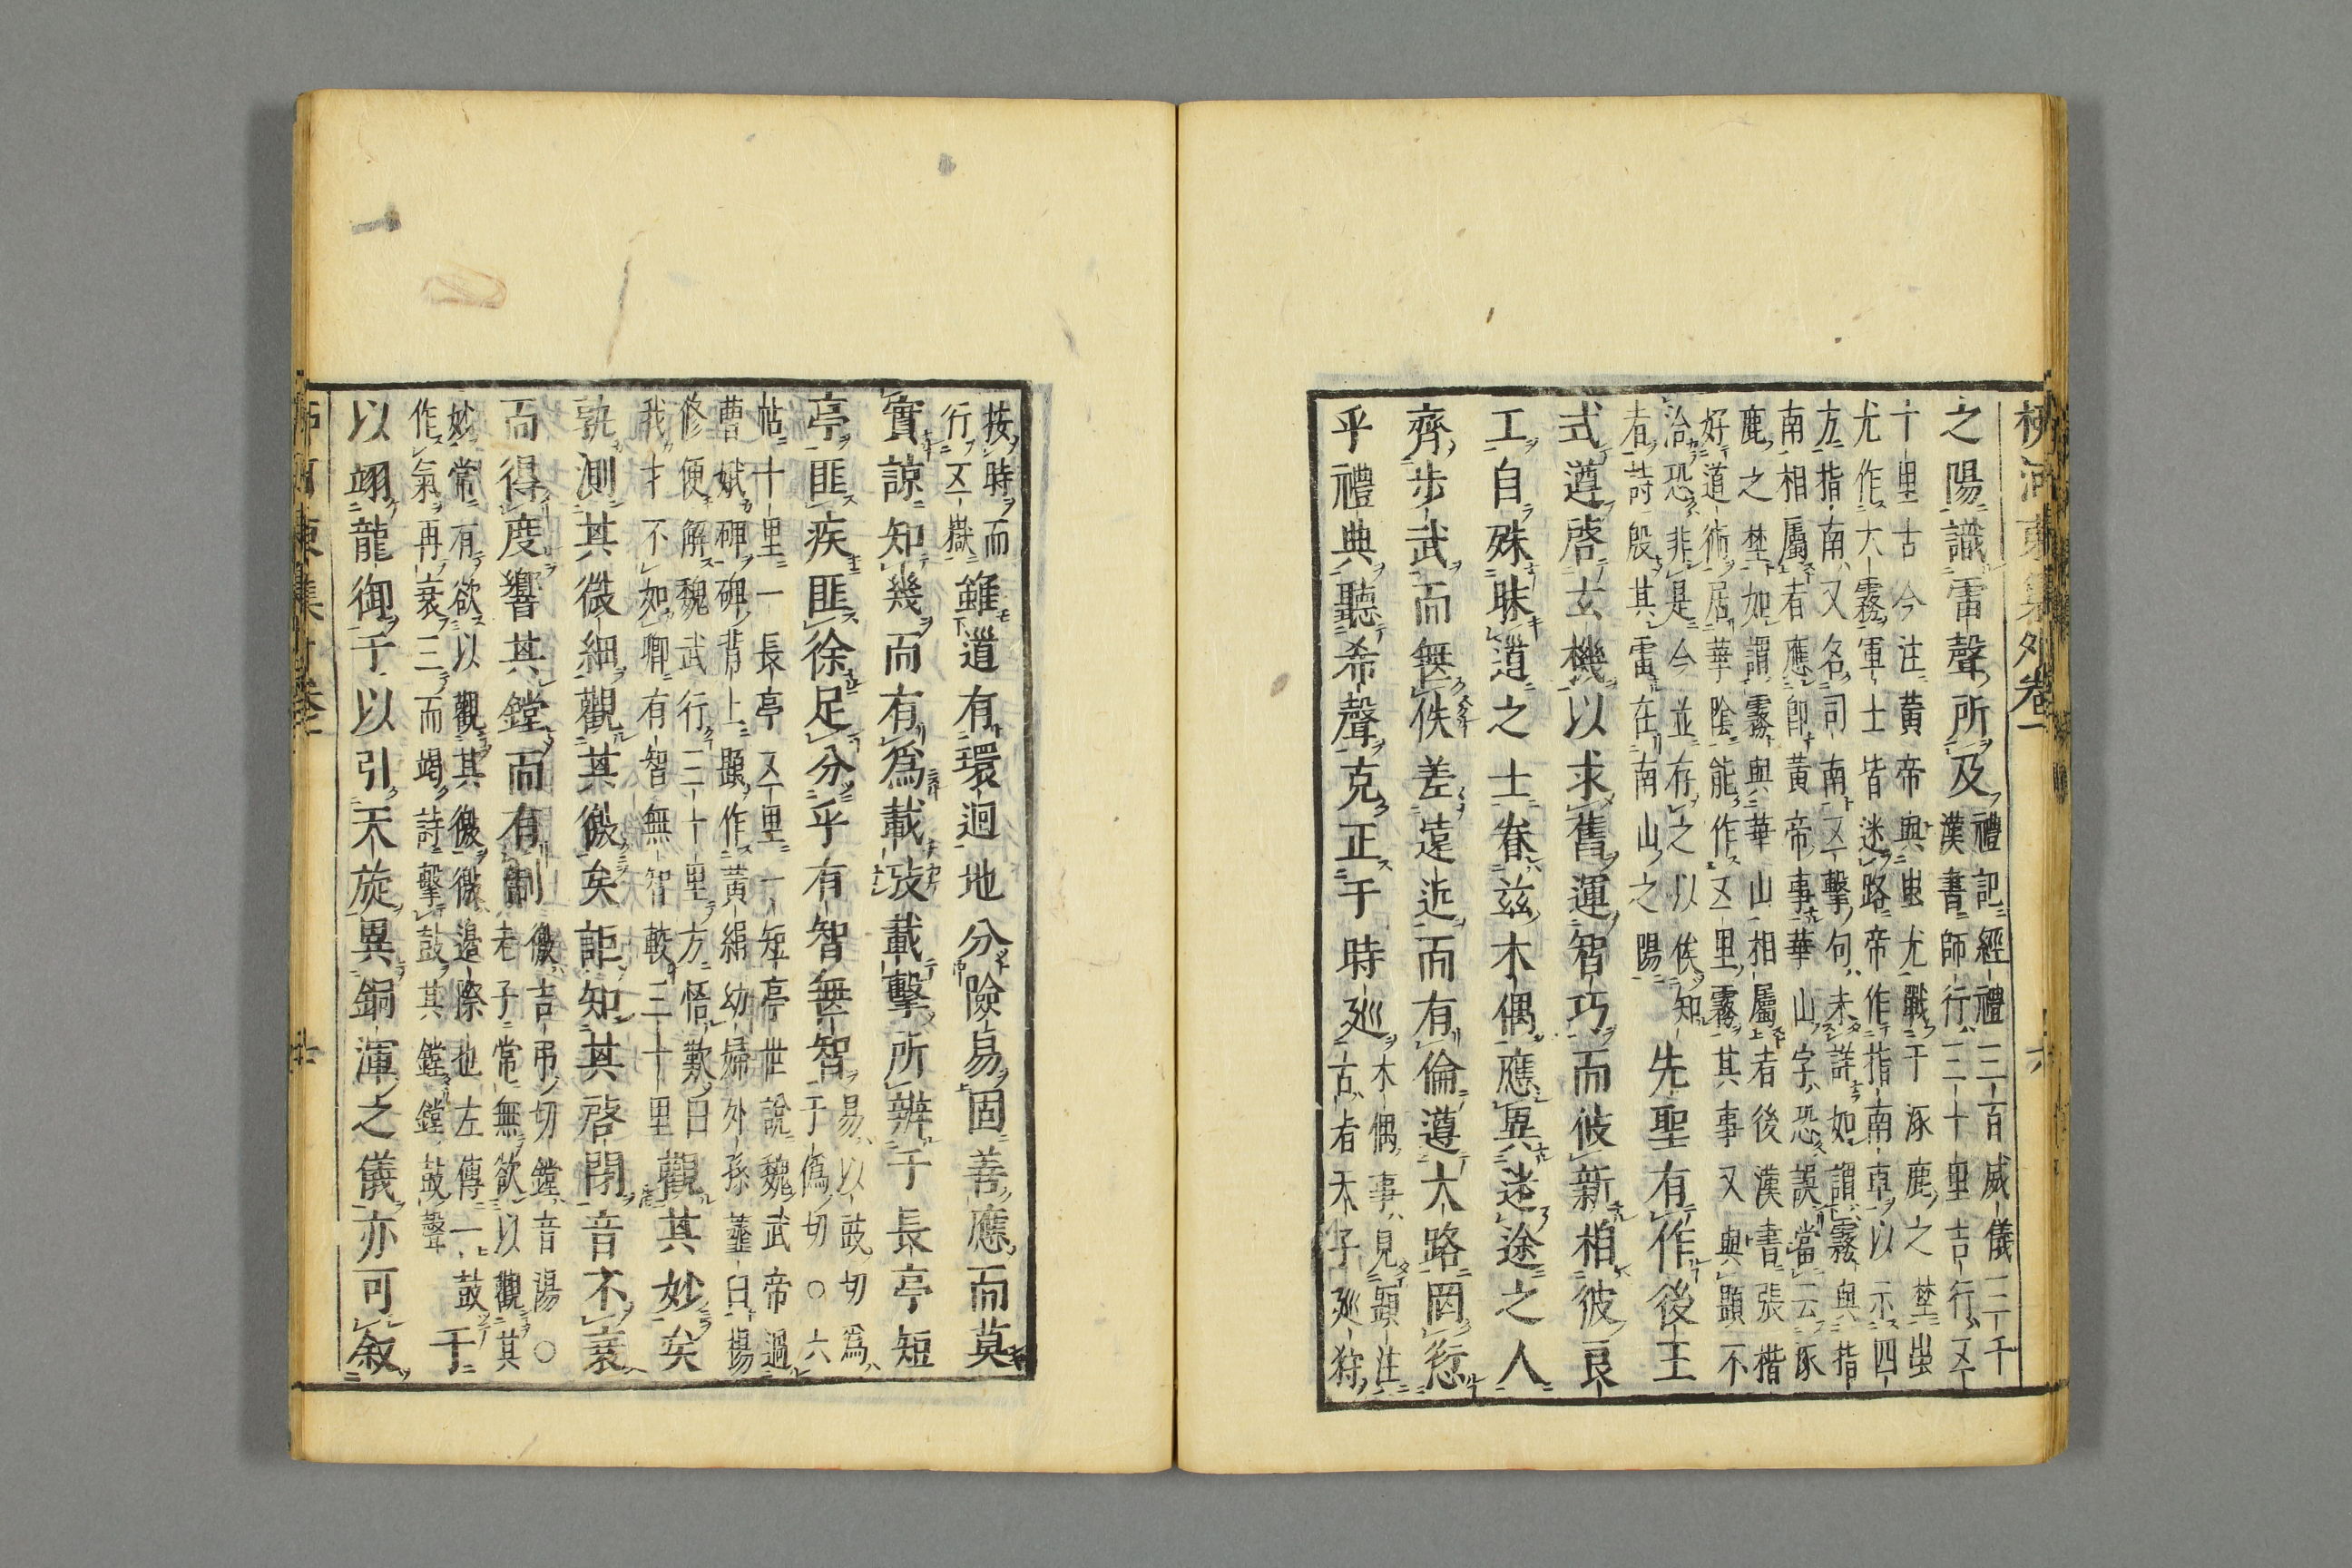 柳河東集外卷一 六
之陽識雷聲所及禮記經禮三百威儀三千
漢書師行三十里吉行五
十里古今注黃帝與蚩尤戰于涿鹿之埜蚩
尤作大霧軍士皆迷路帝作指南車以示四
方指南又名司南又擊句未詳如謂霧與指
南相屬者應卽黃帝事華山字恐誤當云涿
鹿之埜如謂霧與華山相屬者後漢書張楷
好道術居華陰能作五里霧其事又與題不
洽恐非是今並存之以俟知
者詩殷其雷在南山之陽
先聖有作後王
式遵啓玄機以求舊運智巧而攸新相彼良
工自殊昧道之士眷茲木偶應異迷途之人
齊步武而無佚差遠近而有倫遵大路罔愆
乎禮典聽希聲克正于時廵木偶事見題注
古者天子廵狩
按時而
行五嶽
雖道有環迴地分險易固善應而莫
實諒知幾而有爲載攷載擊所辨于長亭短
亭匪疾匪徐足分乎有智無智易以豉切爲
于僞切○六
帖十里一長亭五里一短亭世說魏武帝過
曹娥碑碑背上題作黃絹幼婦外孫虀臼楊
修便解魏武行三十里方悟歎曰
我才不如卿有智無智較三十里
觀其妙矣
孰測其微細觀其徼矣詎知其啓閉音不衰
而得度響其鏜而有制徼吉弔切鏜音湯○
老子常無欲以觀其
妙常有欲以觀其徼徼邊際也左傳一鼓
作氣再衰三而竭詩擊鼓其鏜鏜鼓聲
于
以翊龍御于以引天旋異銅渾之儀亦可叙
柳河東集外卷一 六